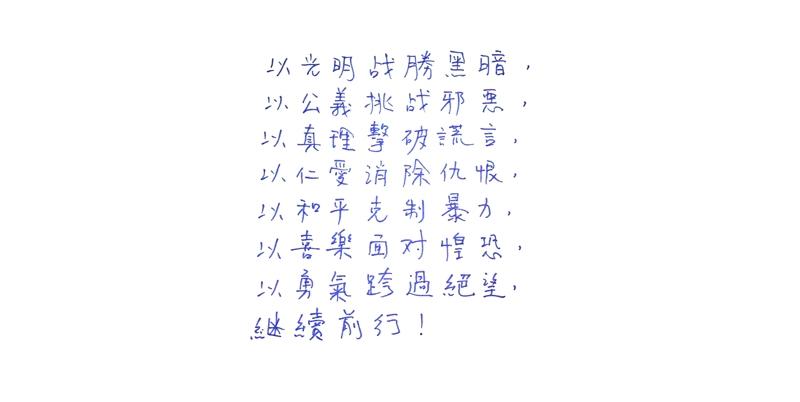 以光明战勝黑暗，
以公義挑战邪惡，
以真理擊破謊言，
以仁愛消除仇恨，
以和平克制暴力，
以喜樂面对惶恐，
以勇氣跨過絕望，
継續前行！